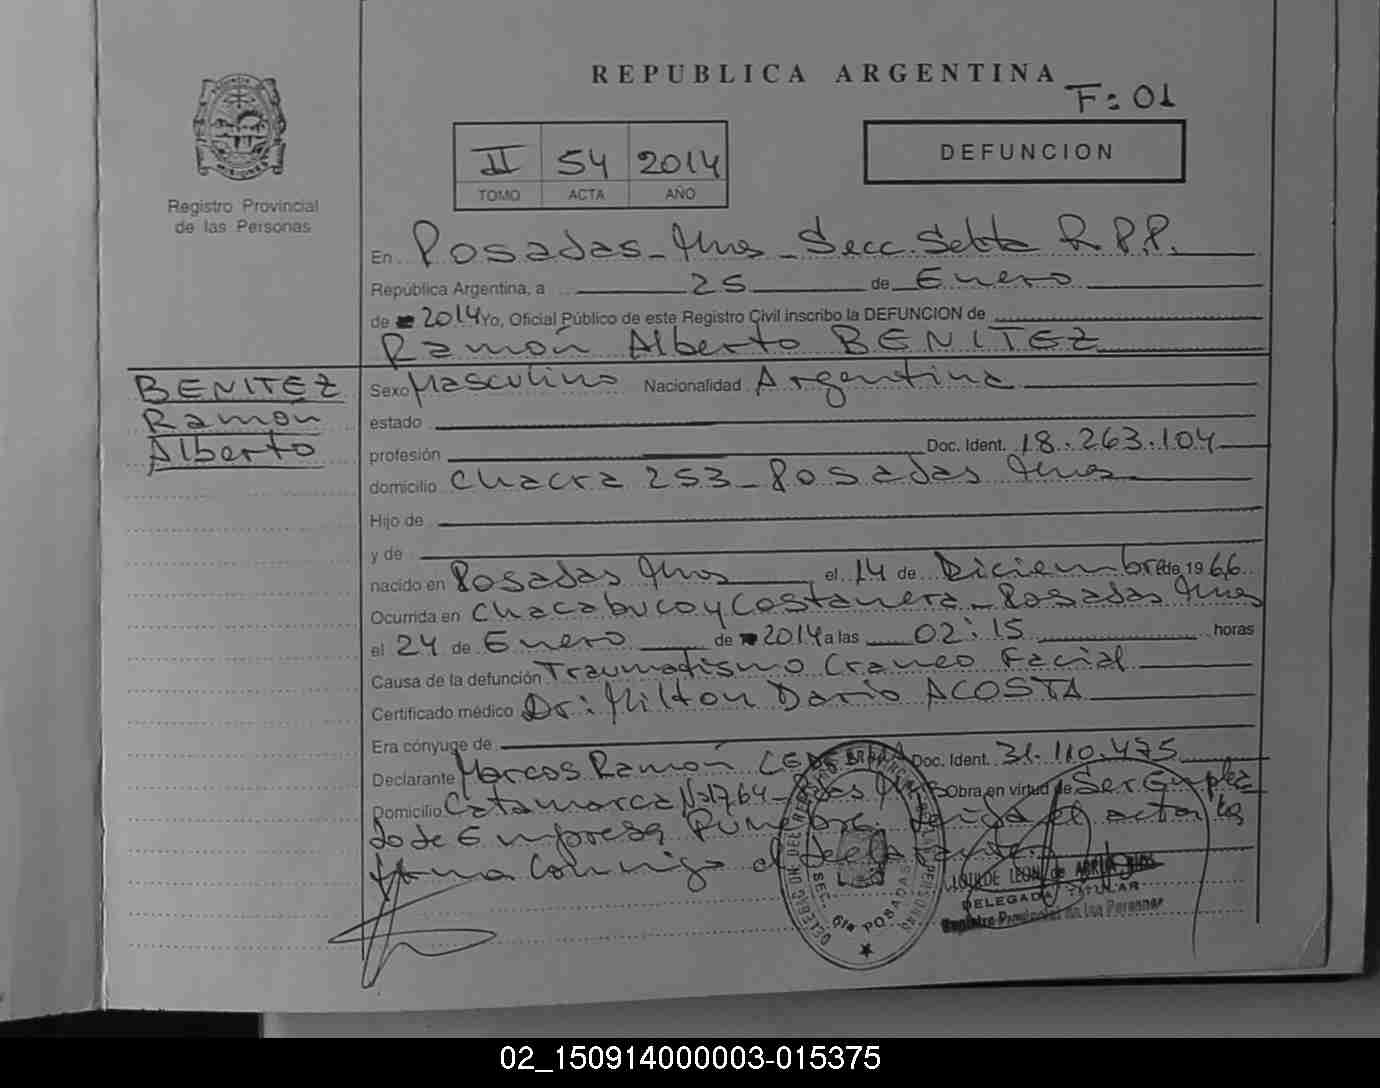 REPUBLICA ARGENTINA
F: 01
DEFUNCION
II 54 2014
TOMO ACTA AÑO
Registro Provincial
de las Personas
En Posadas - Mnes - Secc. Sexta R.P.P.
República Argentina, a 25 de Enero
de 2014 Yo, Oficial Público de este Registro Civil inscribo la DEFUNCION de
Ramón Alberto BENITEZ
BENITEZ
Ramón
Alberto
Sexo Masculino Nacionalidad Argentina
estado
profesión Doc. Ident. 18.263.104
domicilio Chacra 253 - Posadas Mnes
Hijo de
y de
nacido en Posadas Mnes el 14 de Diciembre de 1966
Ocurrida en Chacabuco y Costanera - Posadas Mnes
el 24 de Enero de 2014 a las 02:15 horas
Causa de la defunción Traumatismo Craneo Facial
Certificado médico Dr: Milton Dario ACOSTA
Era cónyuge de
Declarante Marcos Ramón Doc. Ident. 31.110.475
Domicilio Catamarca No 1764 - Pdas Mnes Obra en virtud de Ser Emplea
do de Empresa Fúnebre. Leída el acta la
firma conmigo el declarante.
DELEGACION DEL REGISTRO PROVINCIAL DE LAS PERSONAS
SEC. 6ta POSADAS
DELEGADA TITULAR
Registro Provincial de las Personas
02_150914000003-015375